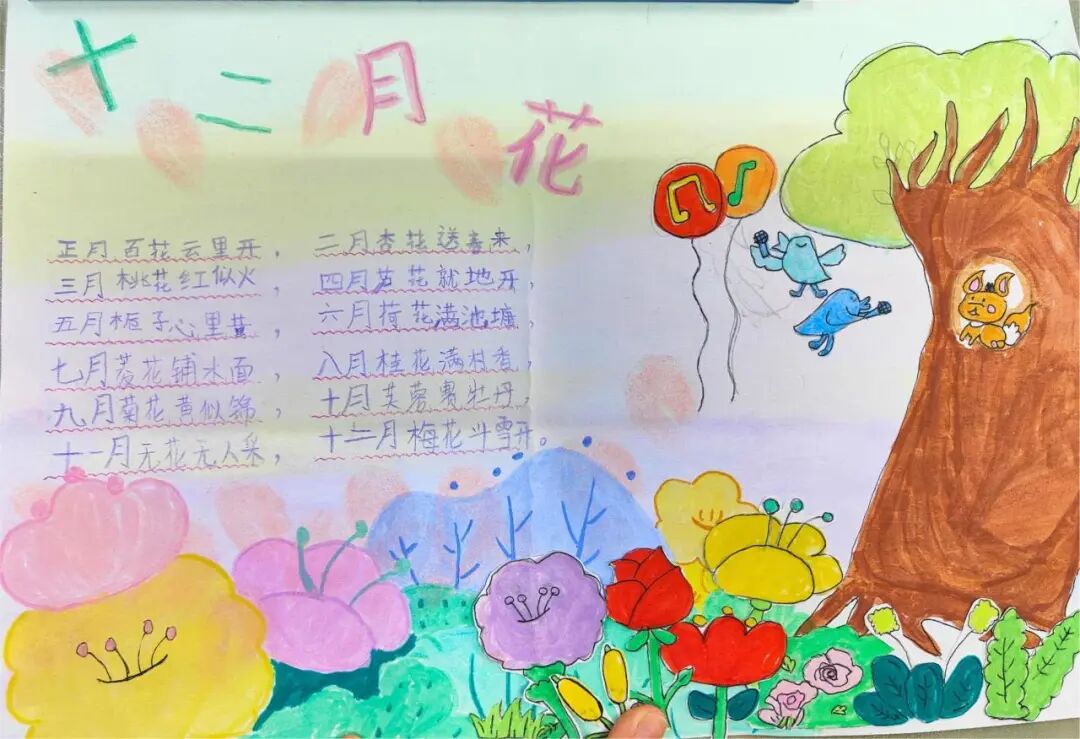 十二月花
正月百花云里开， 二月杏花送春来，
三月桃花红似火， 四月芦花就地开，
五月栀子心里黄， 六月荷花满池塘，
七月菱花铺水面， 八月桂花满枝香，
九月菊花黄似锦， 十月芙蓉赛牡丹，
十一月无花无人采， 十二月梅花斗雪开。